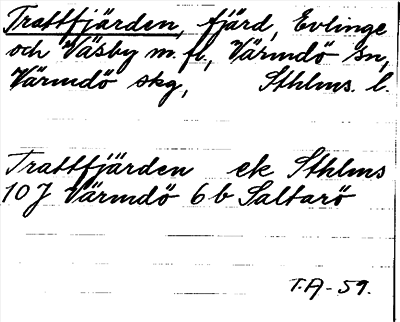 Trattfjärden, fjärd, Evlinge
och Väsby m.fl., Värmdö sn,
Värmdö skg, Sthlms. l.
Trattfjärden ek Sthlms
10J Värmdö 6b Saltarö
T.A-59.